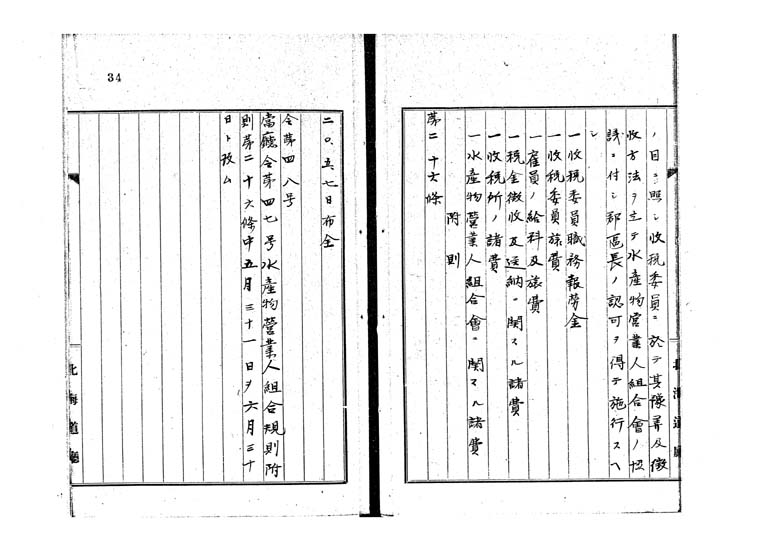 ノ目ニ照シ收税委員ニ於テ其豫算及徴
收方法ヲ立テ水産物営業人組合會ノ
議ニ付シ郡區長ノ認可ヲ得テ施行スヘ
シ
一收税委員職務報労金
一收税委員旅費
一雇員ノ給料及旅費
一税金徴收及送納ニ関スル諸費
一收税所ノ諸費
一水産物営業人組合會ニ関スル諸費
附則
第二十六條
北海道廳
34
二〇、五、七日布令
令第四八号
當廳令第四七号水産物營業人組合規則附
則第二十六條中五月三十一日ヲ六月三十
日ト改ム
北海道廳